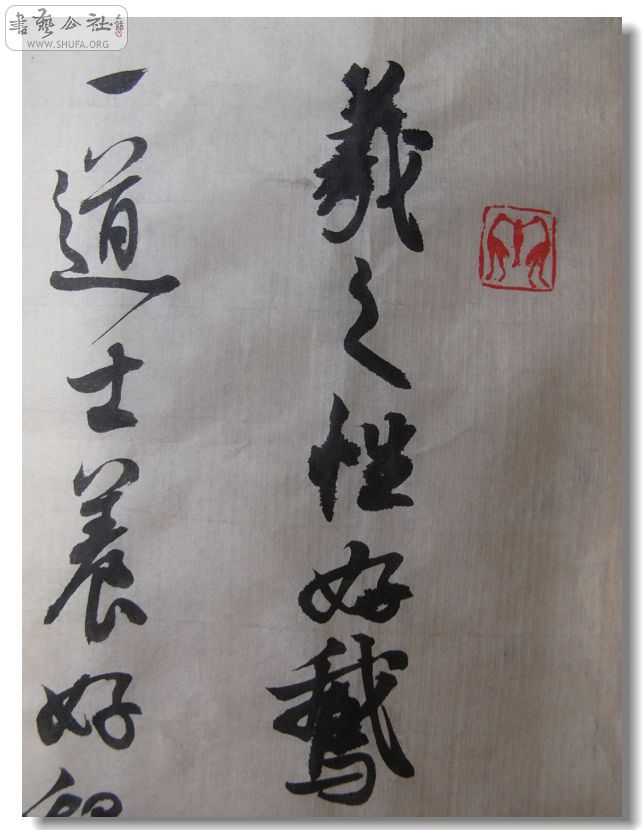 羲之性好鵝
一道士養好
書藝公社
WWW.SHUFA.ORG